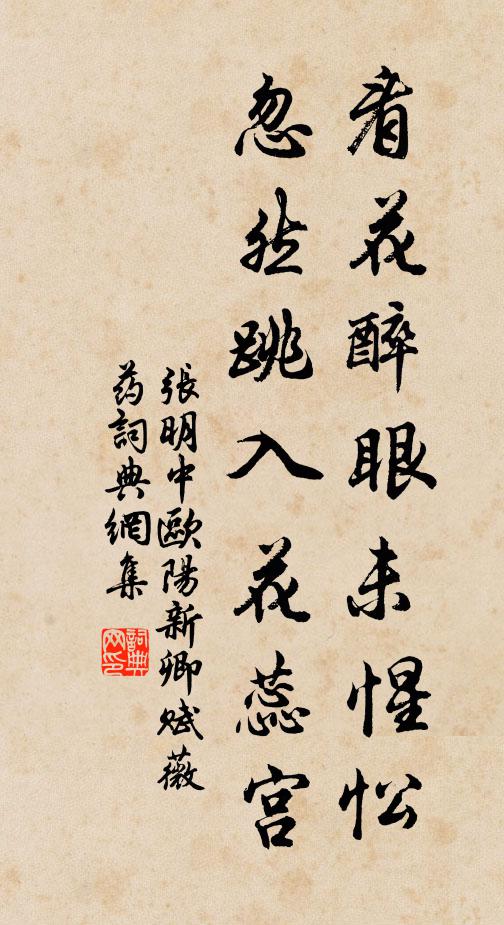 看花醉眼未惺忪
忽然跳入花蕊宫
張明中歐陽新卿賦薇
药詞典網集
詞典网印